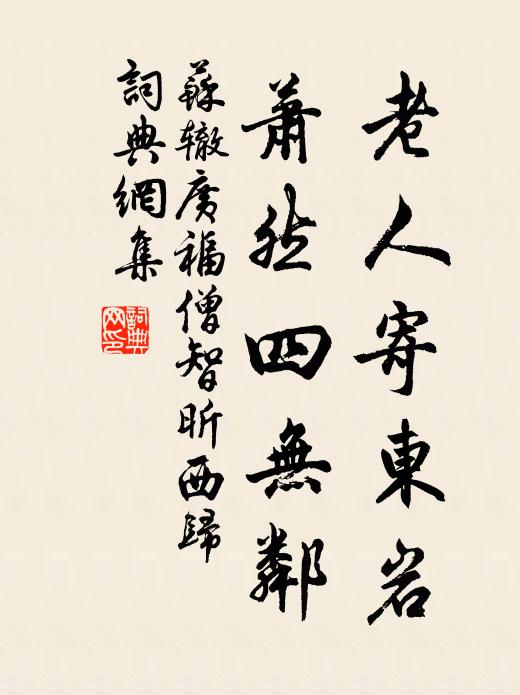 老人寄東岩
蕭然四無鄰
蘇辙廣福僧智昕西歸
詞典網集
詞典网印